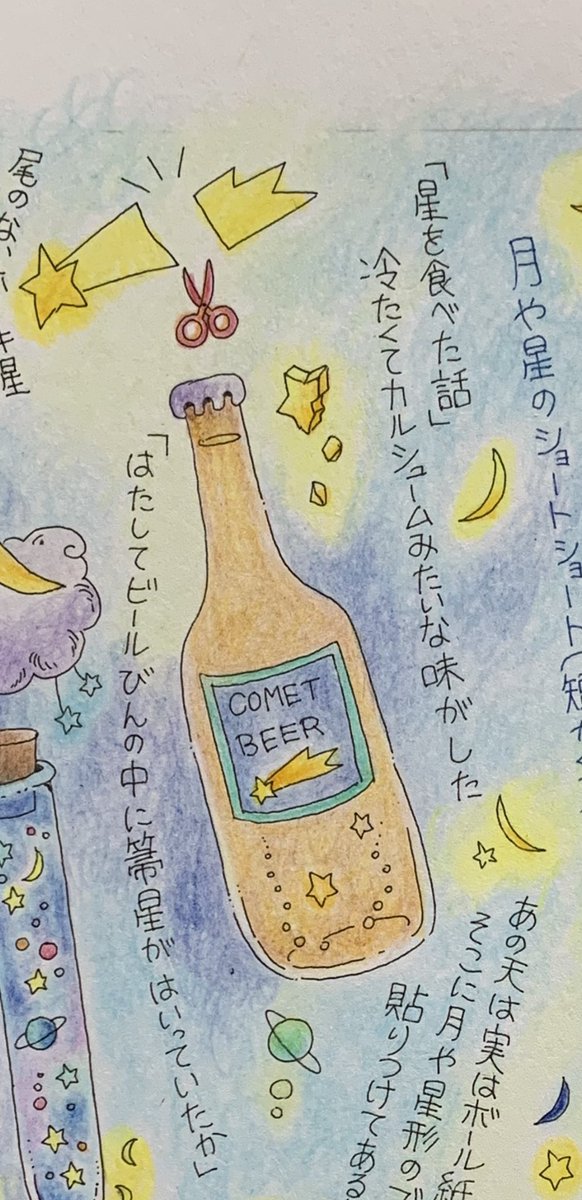 月や星のショートショート(短か
「星を食べた話」
冷たくてカルシュームみたいな味がした
尾のない
キ星
「はたしてビールびんの中に箒星がはいっていたか」
COMET
BEER
あの天は実はボール紙
そこに月や星形の
貼りつけてある